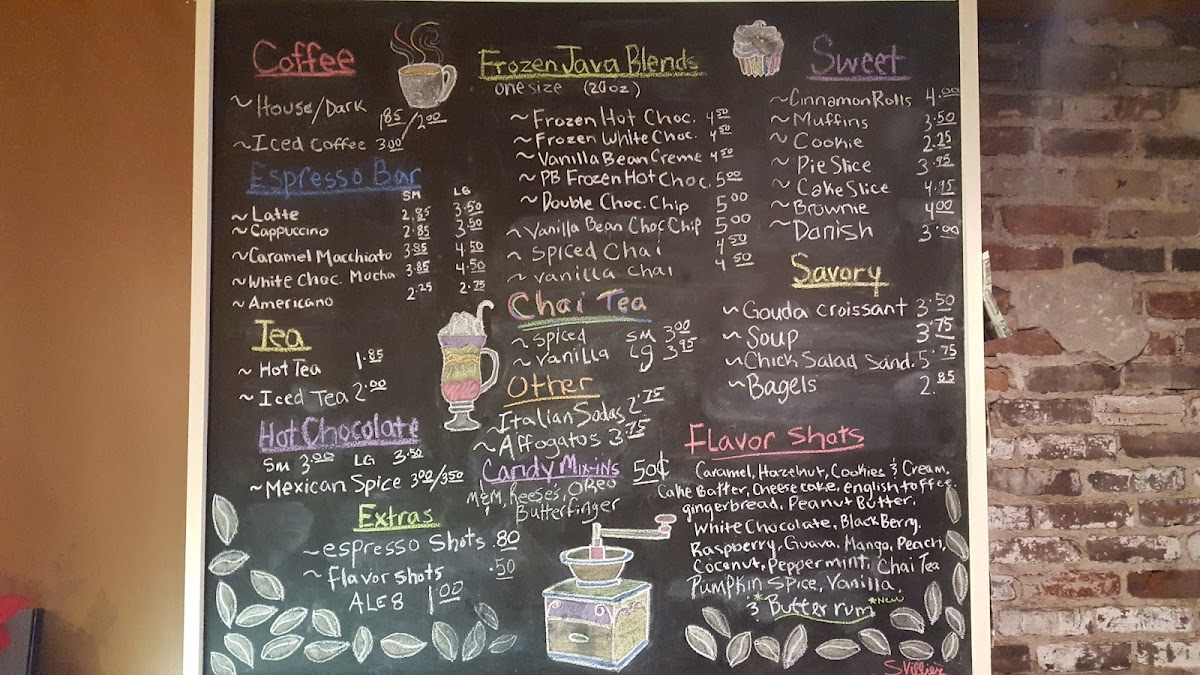 Coffee
~ House/Dark 1.85/2.00
~ Iced Coffee 3.00
Espresso Bar
SM LG
~ Latte 2.85 3.50
~ Cappuccino 2.85 3.50
~ Caramel Macchiato 3.85 4.50
~ White Choc. Mocha 3.85 4.50
~ Americano 2.25 2.75
Tea
~ Hot Tea 1.85
~ Iced Tea 2.00
Hot Chocolate
SM 3.00 LG 3.50
~ Mexican Spice 3.00/3.50
Extras
~ espresso shots .80
~ flavor shots .50
ALE 8 1.00
Frozen Java Blends
one size (20oz)
~ Frozen Hot Choc. 4.50
~ Frozen White Choc. 4.50
~ Vanilla Bean Creme 4.50
~ PB Frozen Hot Choc. 5.00
~ Double Choc. Chip 5.00
~ Vanilla Bean Choc Chip 5.00
~ Spiced Chai 4.50
~ Vanilla Chai 4.50
Chai Tea
~ Spiced SM 3.00
~ Vanilla Lg 3.95
Other
~ Italian Sodas 2.75
~ Affogatos 3.75
Candy Mix-iNs 50¢
M&M, Reeses, Oreo
Butterfinger
Sweet
~ Cinnamon Rolls 4.00
~ Muffins 3.50
~ Cookie 2.25
~ Pie Slice 3.95
~ Cake Slice 4.95
~ Brownie 4.00
~ Danish 3.00
Savory
~ Gouda croissant 3.50
~ Soup 3.75
~ Chick Salad Sand. 5.75
~ Bagels 2.85
Flavor Shots
Caramel, Hazelnut, Cookies & Cream,
Cake Batter, Cheesecake, english toffee,
gingerbread, Peanut Butter,
White Chocolate, BlackBerry,
Raspberry, Guava, Mango, Peach,
Coconut, Peppermint, Chai Tea
Pumpkin Spice, Vanilla
& *Butter rum *NEW
SVillier